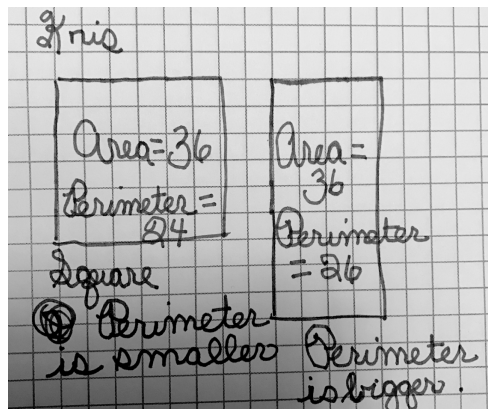 Kris
Area=36
Perimeter =
24
Square
Perimeter
is smaller
Area =
36
Perimeter
= 26
Perimeter
is bigger.